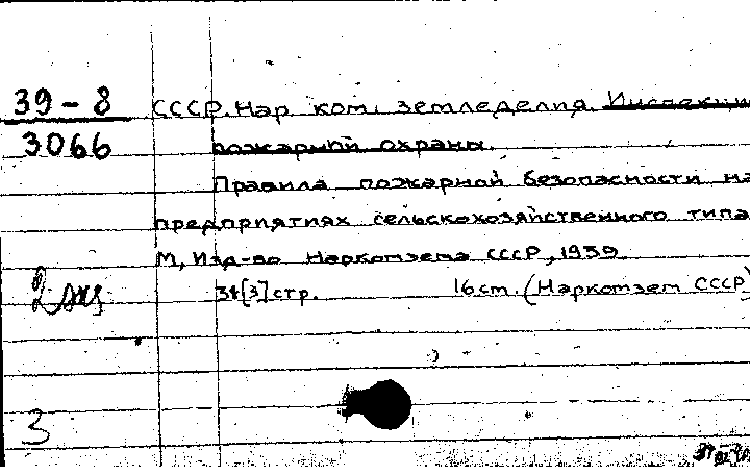 39-8
3066
СССР. Нар. ком. земледелия. Инспекция
пожарной охраны.
Правила пожарной безопасности на
предприятиях сельскохозяйственного типа
М, Изд-во Наркомзема СССР, 1939
[3] стр. 16 см. (Наркомзем СССР)
2 экз
3